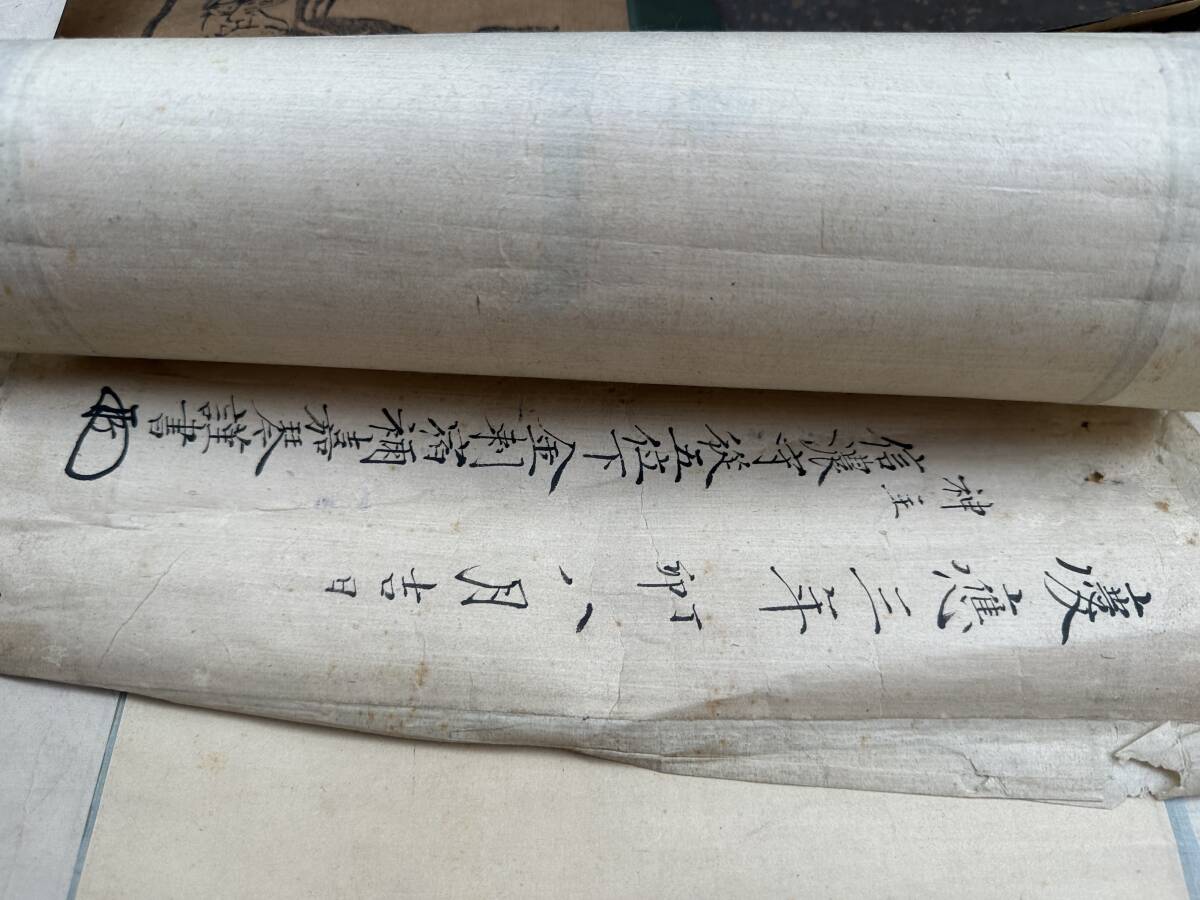 慶應三年丁卯八月吉日
神主
信濃守從五位下金刺宿禰嘉琴謹書